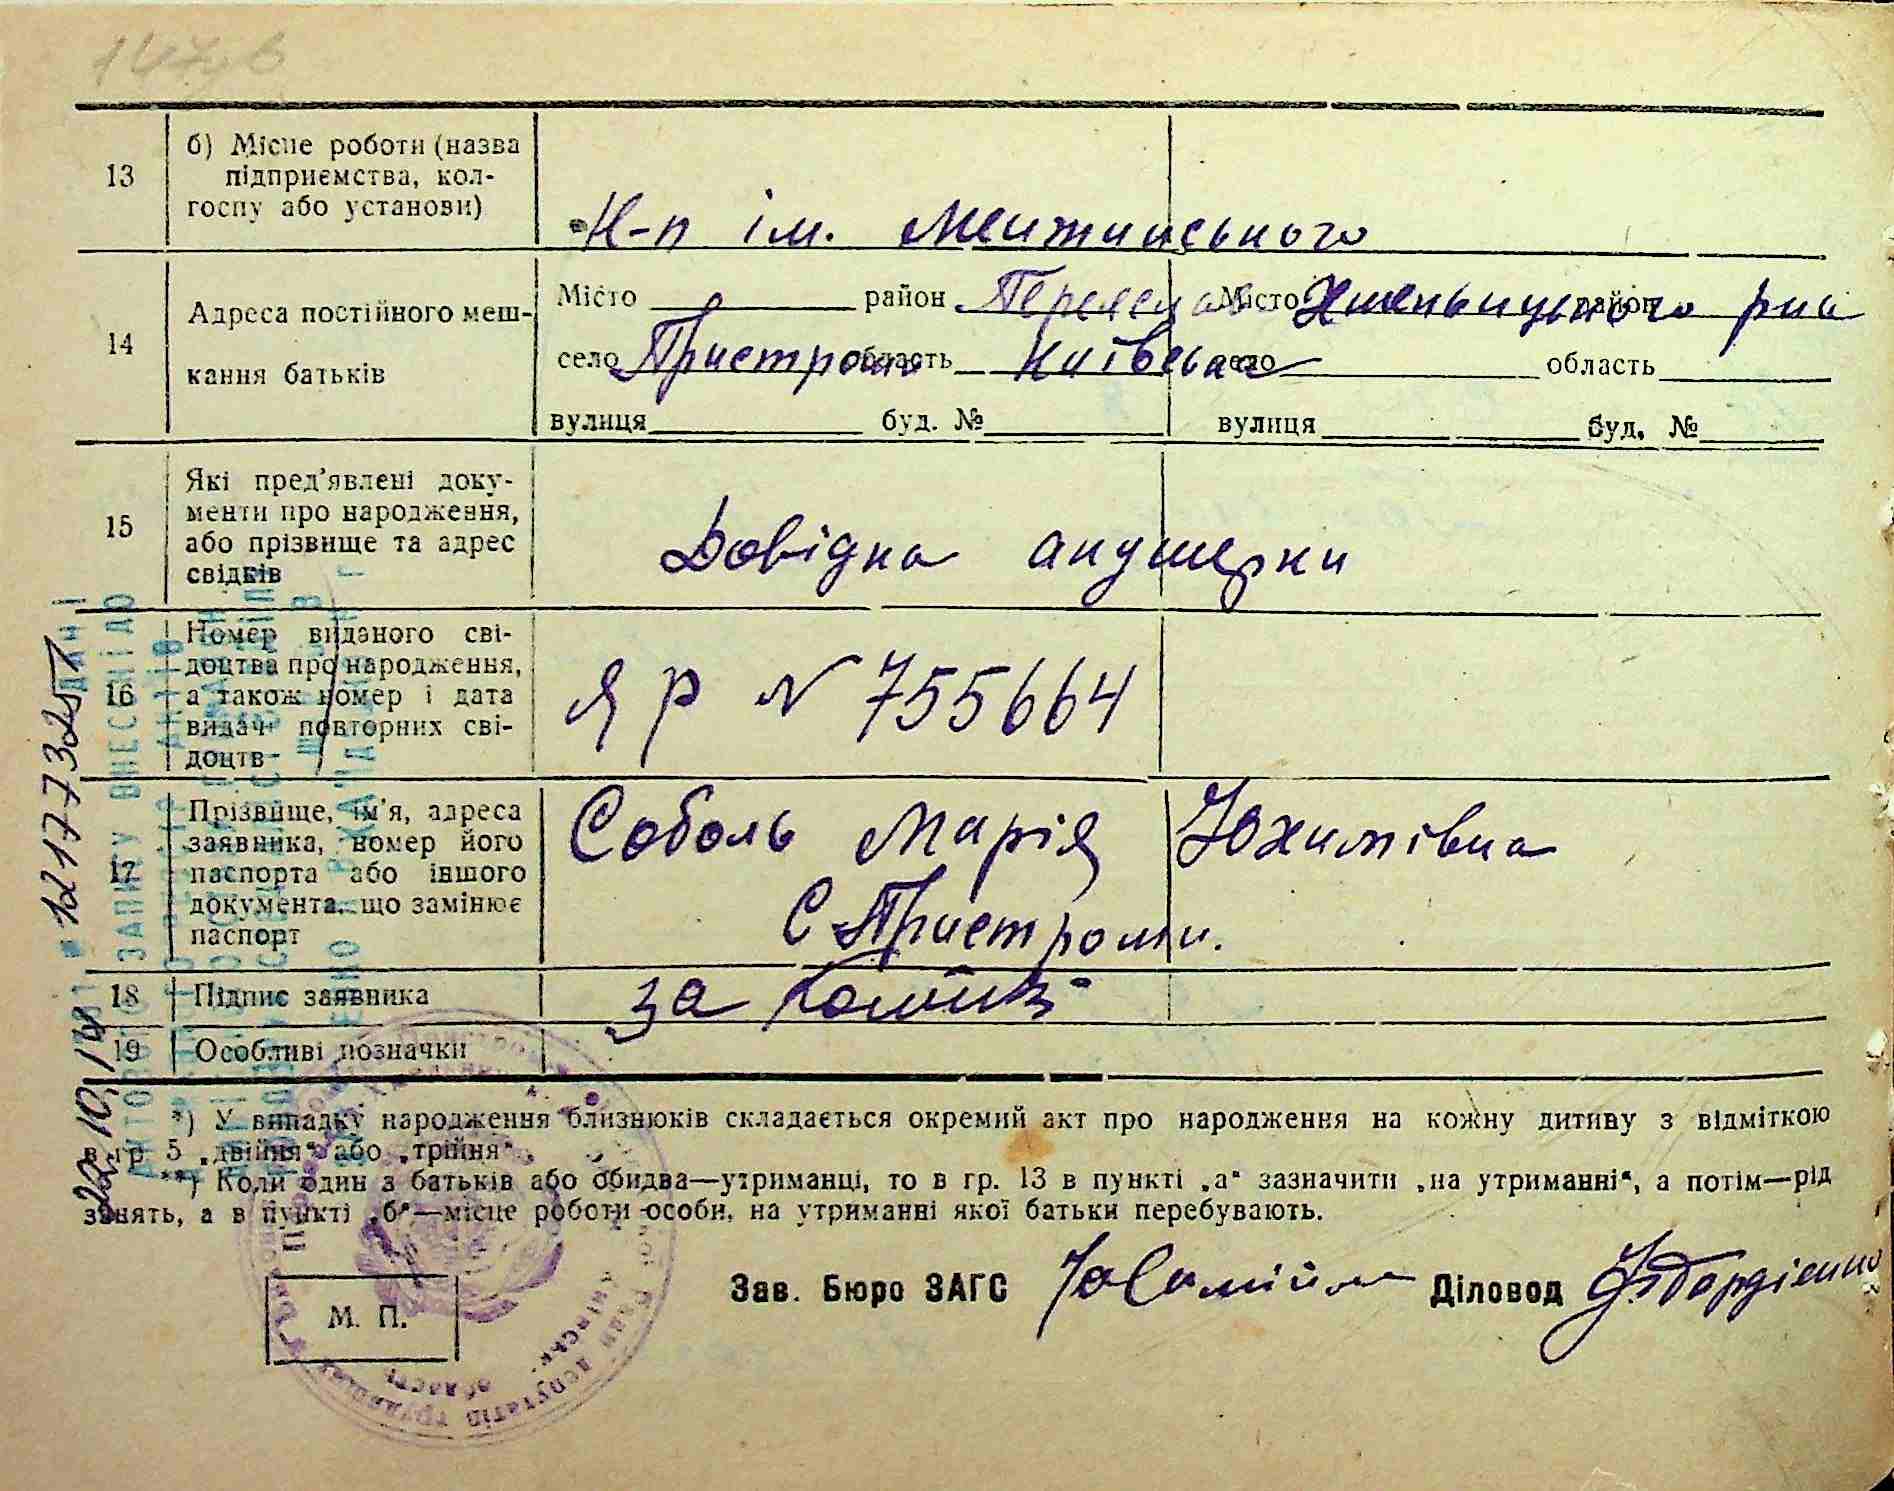 13
б) Місце роботи (назва
підприємства, кол-
госпу або установи)
К-п ім. Менжинського
14
Адреса постійного меш-
кання батьків
Місто район Переяслав Місто Хмельницького район р-на
село Пристроми область Київська село область
вулиця буд. № вулиця буд. №
15
Які пред'явлені доку-
менти про народження,
або прізвище та адрес
свідків
Довідка акушерки
16
Номер виданого сві-
доцтва про народження,
а також номер і дата
видачі повторних сві-
доцтв
Я Р N 755664
17
Прізвище, ім'я, адреса
заявника, номер його
паспорта або іншого
документа, що замінює
паспорт
Соболь Марія Юхимівна
С Пристроми.
18
Підпис заявника
за
19
Особливі позначки
*) У випадку народження близнюків складається окремий акт про народження на кожну дитину з відміткою
в гр 5 „двійня" або „трійня".
**) Коли один з батьків або обидва—утриманці, то в гр. 13 в пункті „а" зазначити „на утриманні", а потім—рід
занять, а в пункті „б"—місце роботи особи, на утриманні якої батьки перебувають.
Зав. Бюро ЗАГС Діловод Гордієнко
М. П.